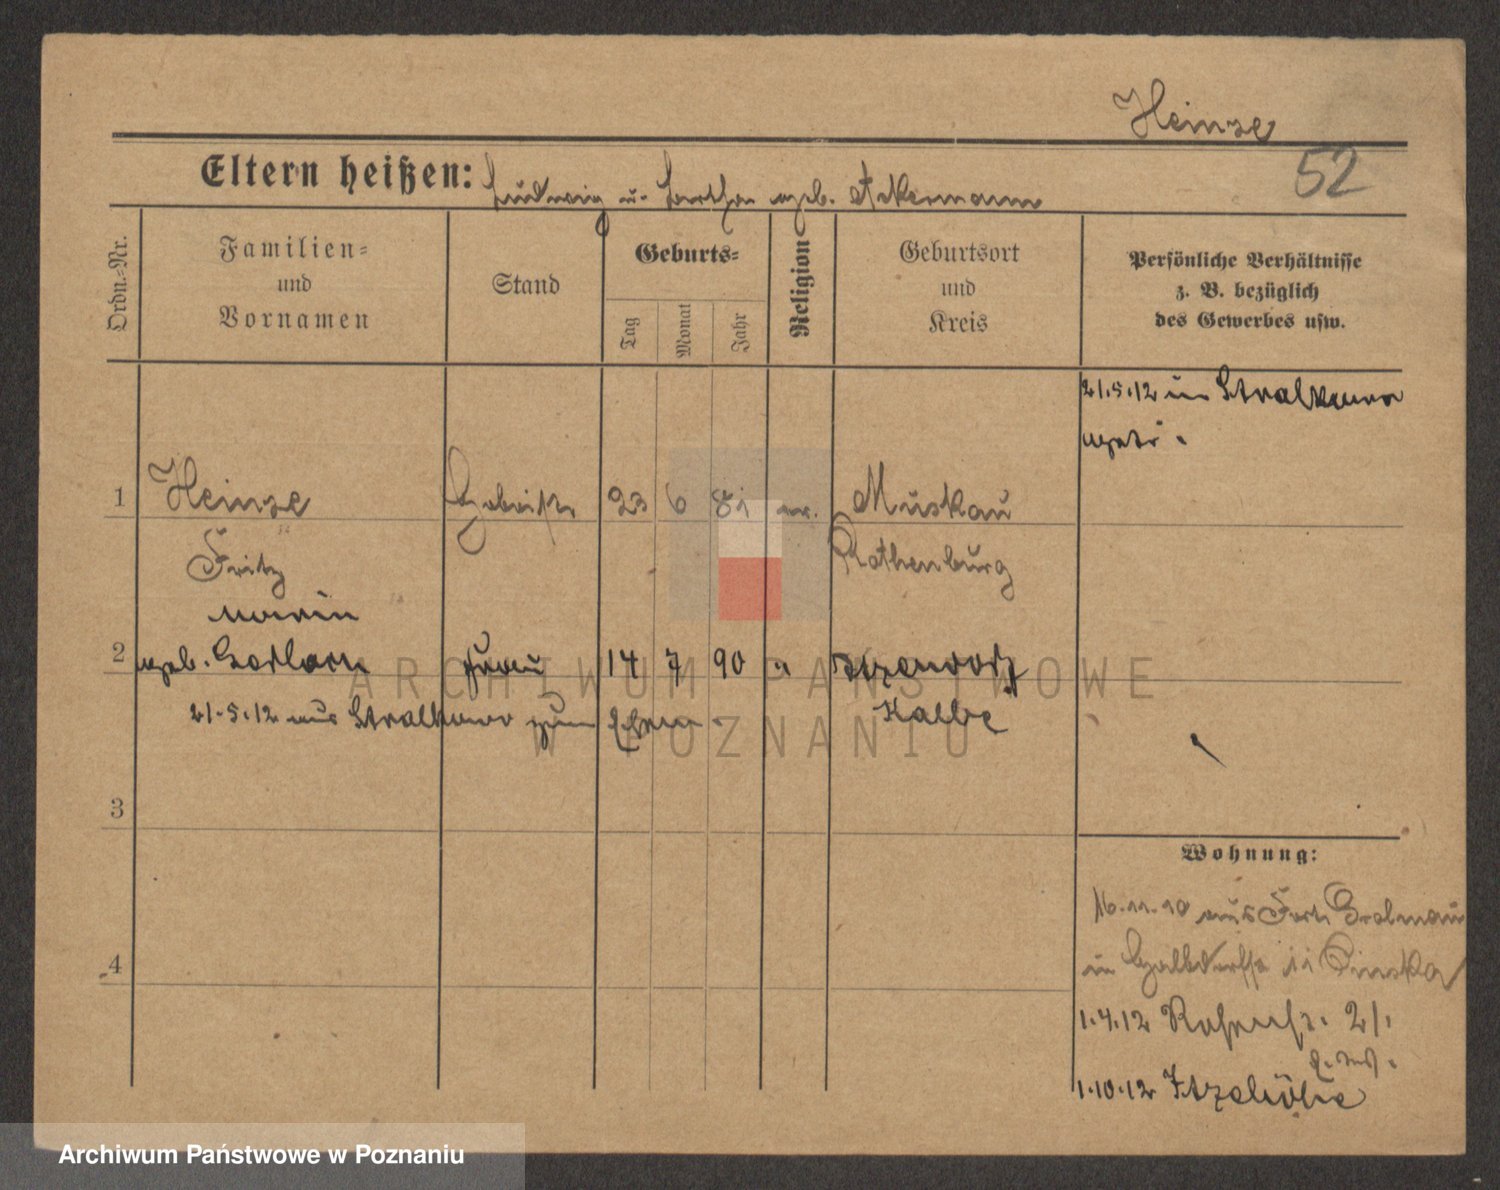 Heinze
52
Eltern heißen: Ludwig u. Bertha geb. Ackermann
Ordn.-Nr.
Familien- und Vornamen
Stand
Geburts-
Tag
Monat
Jahr
Religion
Geburtsort und Kreis
Persönliche Verhältnisse
z. B. bezüglich
des Gewerbes usw.
21.5.12 in Stralkowo
1 Heinze 23 6 81 ev. Muskau
Fritz Rothenburg
2 geb. Frau 14 7 90 "
21.5.12 aus Stralkowo zum Kalbe
3
Wohnung:
16.11.10 aus Fort Grolman
in 11
4
1.4.12 21.
1.10.12 Itzehöhe
ARCHIWUM PAŃSTWOWE
W POZNANIU
Archiwum Państwowe w Poznaniu